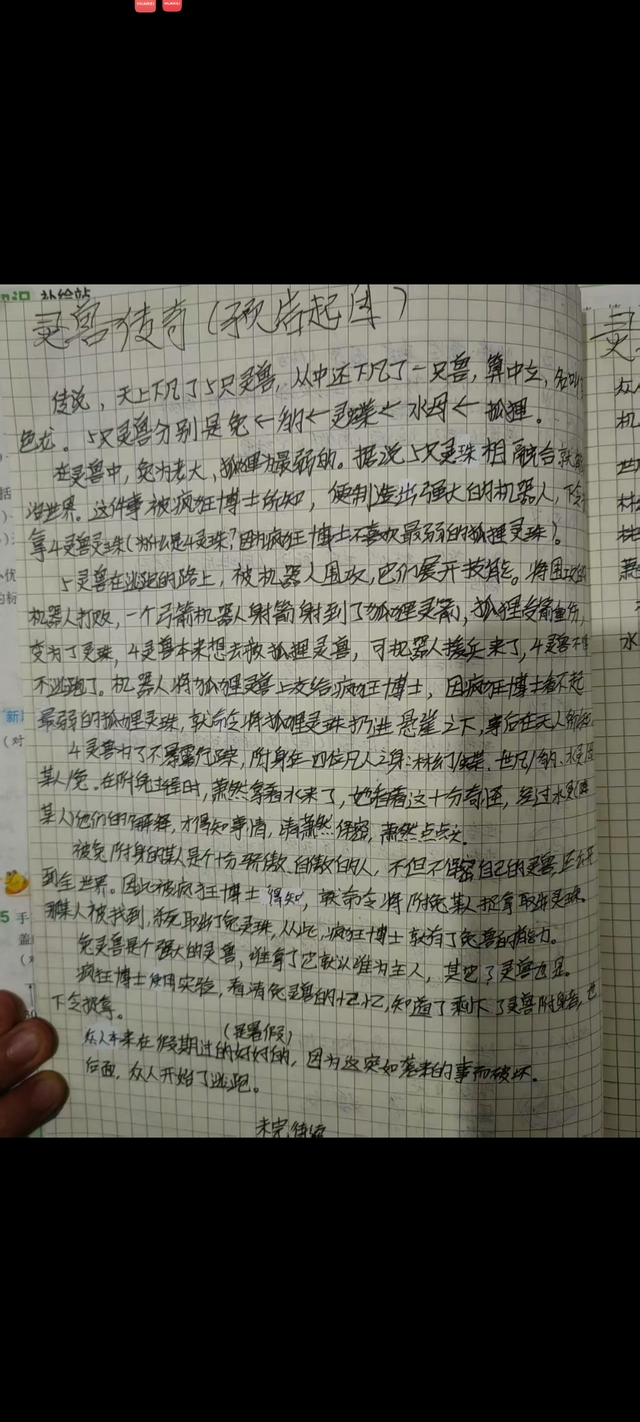 补给站
灵兽传奇(预告起因)
传说,天上下凡了5只灵兽,从中还下凡了一只兽,算中立,名叫
色龙。5只灵兽分别是兔←豹←灵蝶←水母←狐狸。
在灵兽中,兔为老大,狐狸为最弱的。据说5只灵珠相融合就
治世界。这件事被疯狂博士所知,便制造出强大的机器人,下令
拿4灵兽灵珠(为什么是4灵珠?因为疯狂博士不喜欢最弱的狐狸灵珠)。
5灵兽在逃跑的路上,被机器人围攻,它们展开技能。将围攻的
机器人打败,一个弓箭机器人射箭射到了狐狸灵兽,狐狸受箭重伤,
变为了灵珠,4灵兽本来想去救狐狸灵兽,可机器人援兵来了,4灵兽不得
不逃跑了。机器人将狐狸灵兽上交给疯狂博士,因疯狂博士看不起
最弱的狐狸灵珠,就命令将狐狸灵珠扔进悬崖之下,事后在无人
4灵兽为了不暴露行踪,附身在四位凡人之身:林幻/蝶、世凡/豹、水
某人/兔。在附兔过程时,萧然拿着水来了,她看着这十分奇怪,经过水
某人)他们的解释,才得知事情,请萧然保密,萧然点点头。
被兔附身的某人是个十分骄傲、自傲的人,不但不保密自己的灵兽,还
到全世界。因此被疯狂博士得知,就命令将附兔某人捉拿取出灵珠。
某人被找到,系统取出了兔灵珠,从此,疯狂博士就有了兔兽的能力。
兔灵兽是个强大的灵兽,谁拿了它就认谁为主人,其它3灵兽也是。
疯狂博士使用实验,看清兔灵兽的记忆,知道了剩下3灵兽附身者,也
下令捉拿。
(是暑假)
众人本来在假期过的好好的,因为这突如其来的事而破坏。
后面,众人开始了逃跑。
未完待续